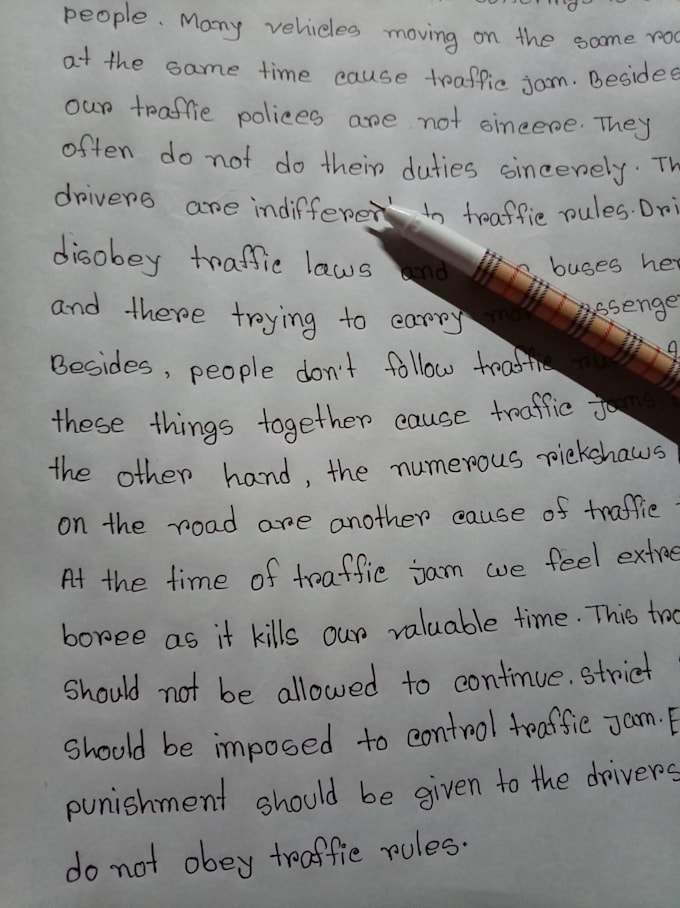 people. Many vehicles moving on the same
at the same time cause traffic jam. Besides
our traffic polices are not sincere. They
often do not do their duties sincerely.
drivers are indifferent to traffic rules.
disobey traffic laws and buses
and there trying to carry
Besides, people don't follow traffic
these things together cause traffic jams.
the other hand, the numerous rickshaws
on the road are another cause of traffic
At the time of traffic jam we feel
boree as it kills our valuable time. This
should not be allowed to continue. strict
should be imposed to control traffic jam.
punishment should be given to the drivers
do not obey traffic rules.